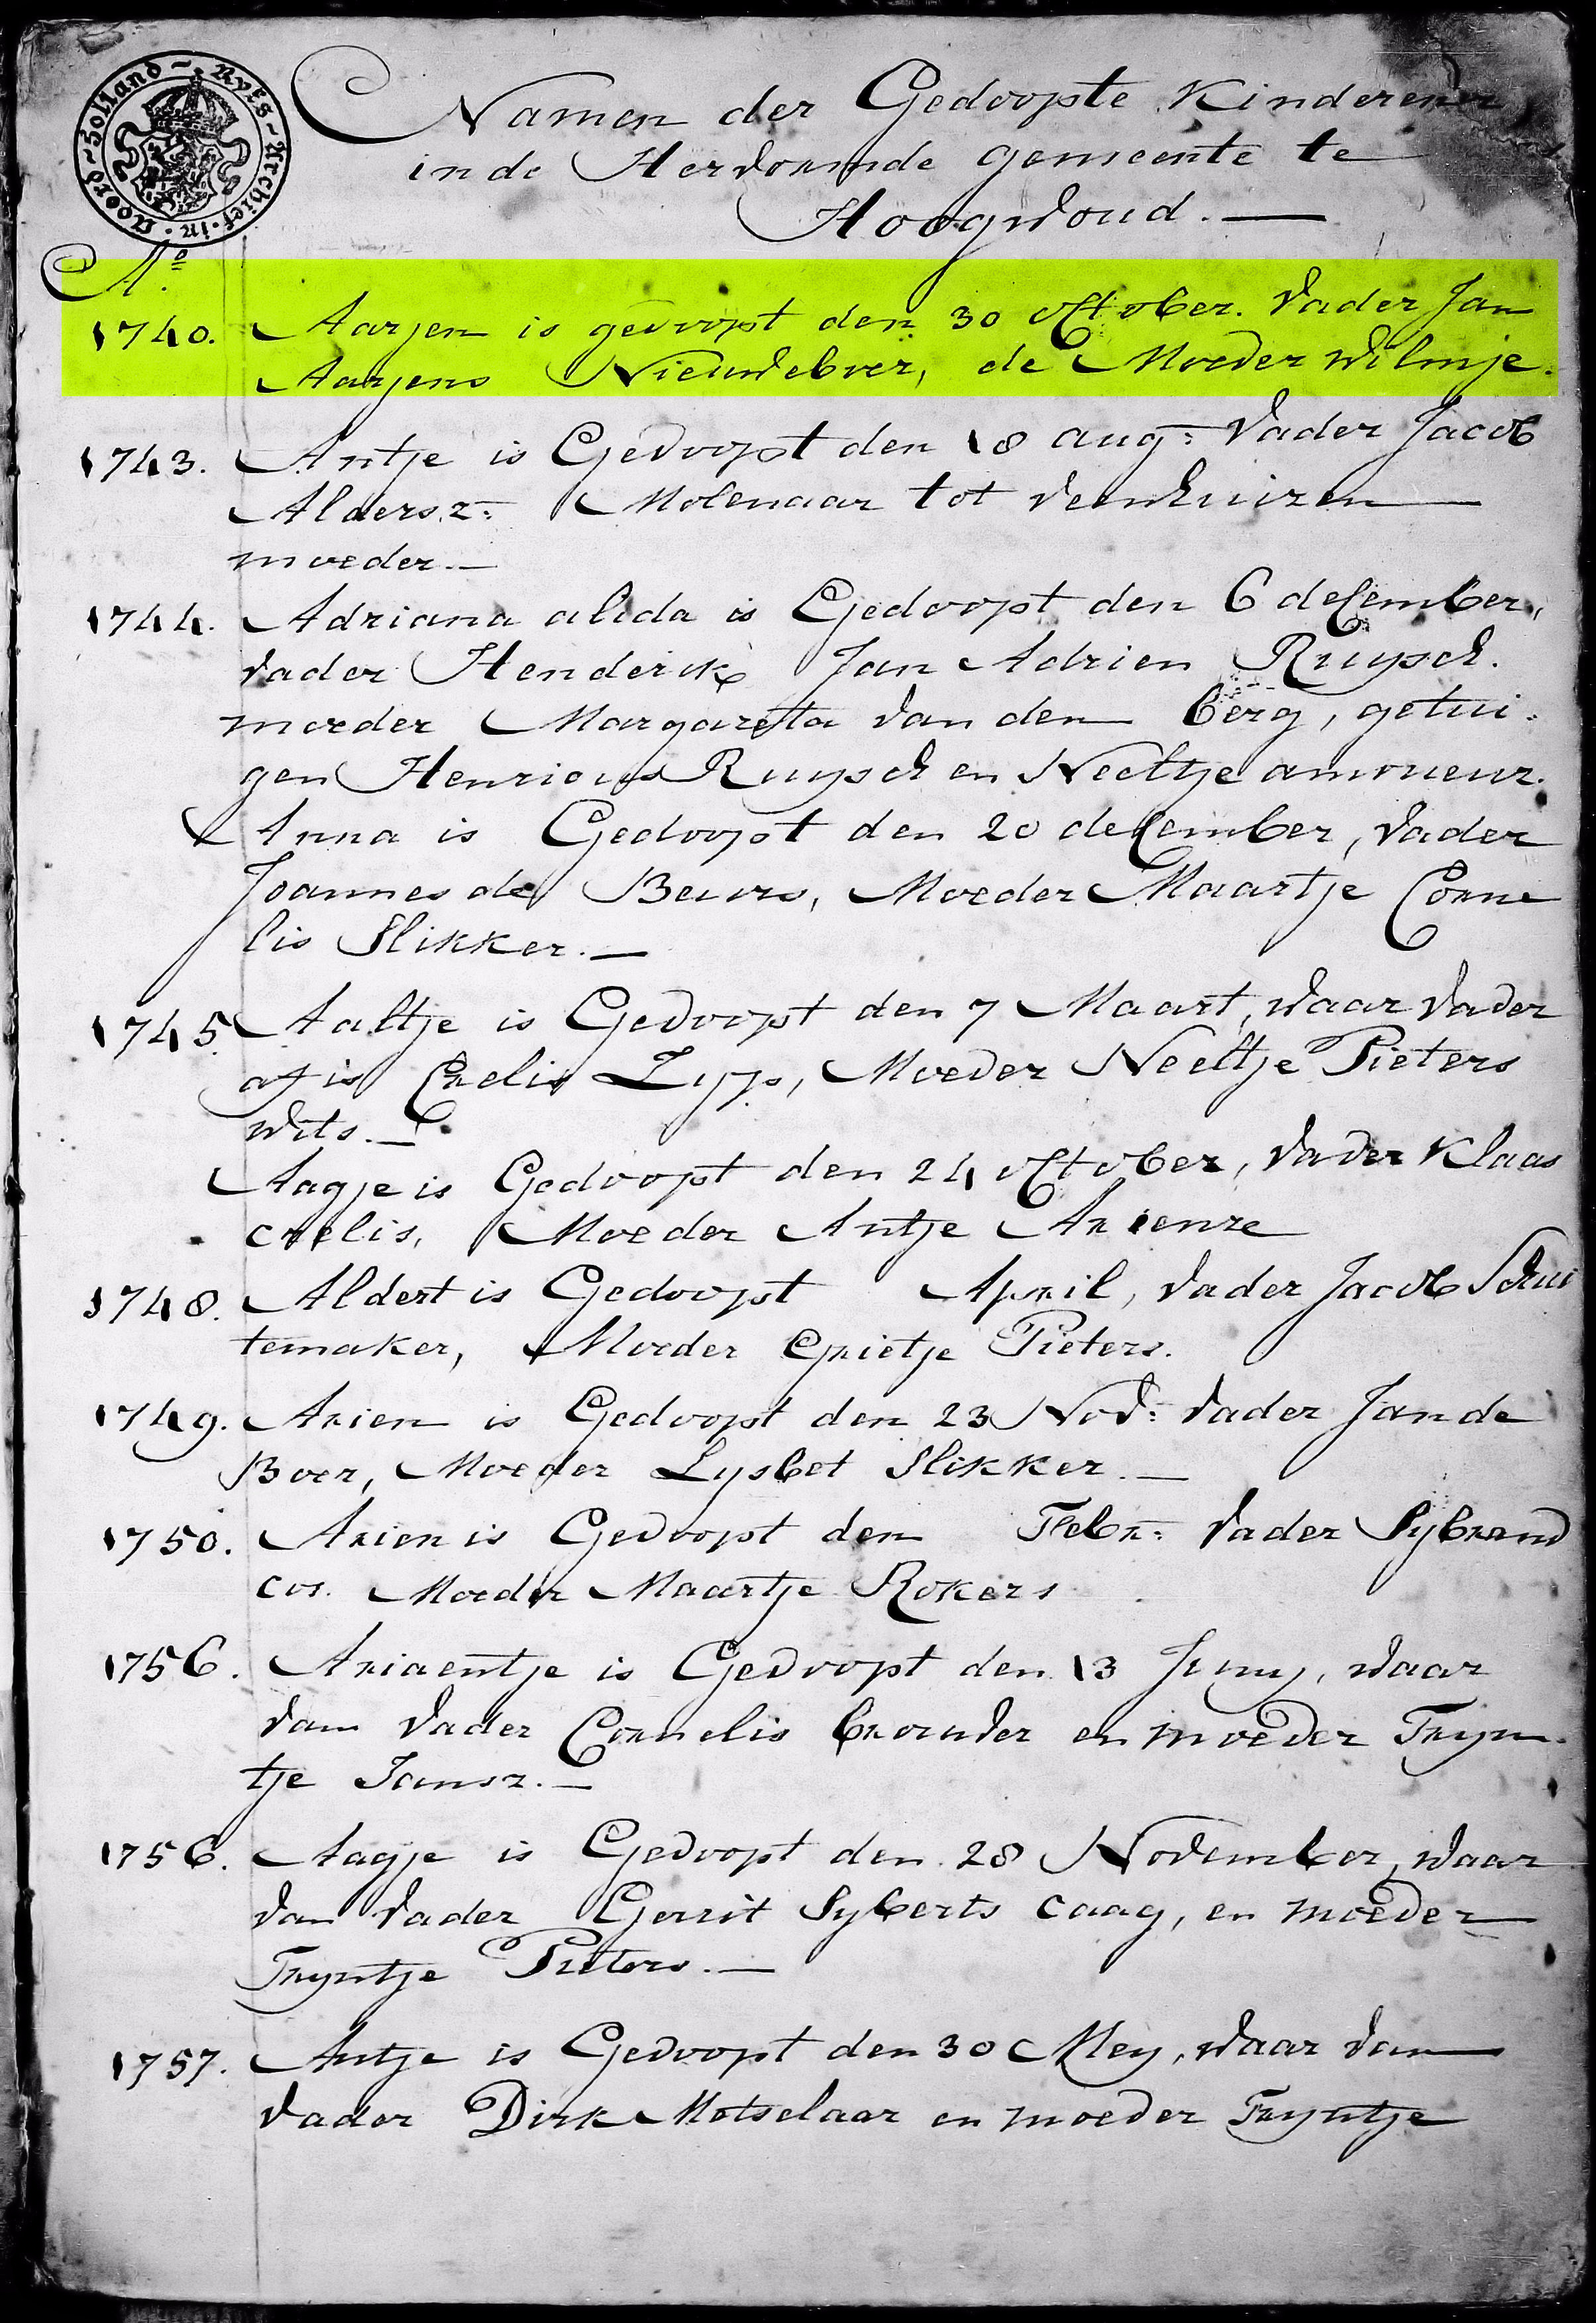 Noord-Holland ~ Ryks-Archief-in
Namen der Gedoopte Kinderen
in de Hervormde gemeente te
Hoogwoud. —
Aº
1740. Aarjen is gedoopt den 30 october. Vader Jan
Aarjens Nieuweboer, de Moeder Wilmje.
1743. Antje is Gedoopt den 18 aug: Vader Jacob
Aldersz: Molenaar tot Veenhuizen —
moeder. —
1744. Adriana alida is Gedoopt den 6 december,
Vader Henderik Jan Adrien Ruysch.
moeder Margareta van den berg, getui-
gen Henricus Ruysch en Neeltje amoueur.
Anna is Gedoopt den 20 december, Vader
Joannes de Beurs, Moeder Maartje Corne
lis Slikker. —
1745. Aaltje is Gedoopt den 7 Maart, waar Vader
af is Crelis Zyp, Moeder Neeltje Pieters
Wits. —
Aagje is Gedoopt den 24 october, Vader Klaas
crelis, Moeder Antje Arienze
1748. Aldert is Gedoopt April, Vader Jacob Schui
temaker, Moeder Grietje Pieters.
1749. Arien is Gedoopt den 23 Nov: Vader Jan de
Boer, Moeder Lysbet Slikker. —
1750. Arien is Gedoopt den Febr: Vader Sybrand
cos. Moeder Maartje Rokers
1756. Ariaentje is Gedoopt den 13 Juny, waar
van Vader Cornelis brouwer en moeder Tryn-
tje Jansz. —
1756. Aagje is Gedoopt den 28 November, waar
van Vader Gerrit Syberts Caag, en moeder
Tryntje Pieters. —
1757. Antje is Gedoopt den 30 Mey, waar van
Vader Dirk Metselaar en moeder Tryntje